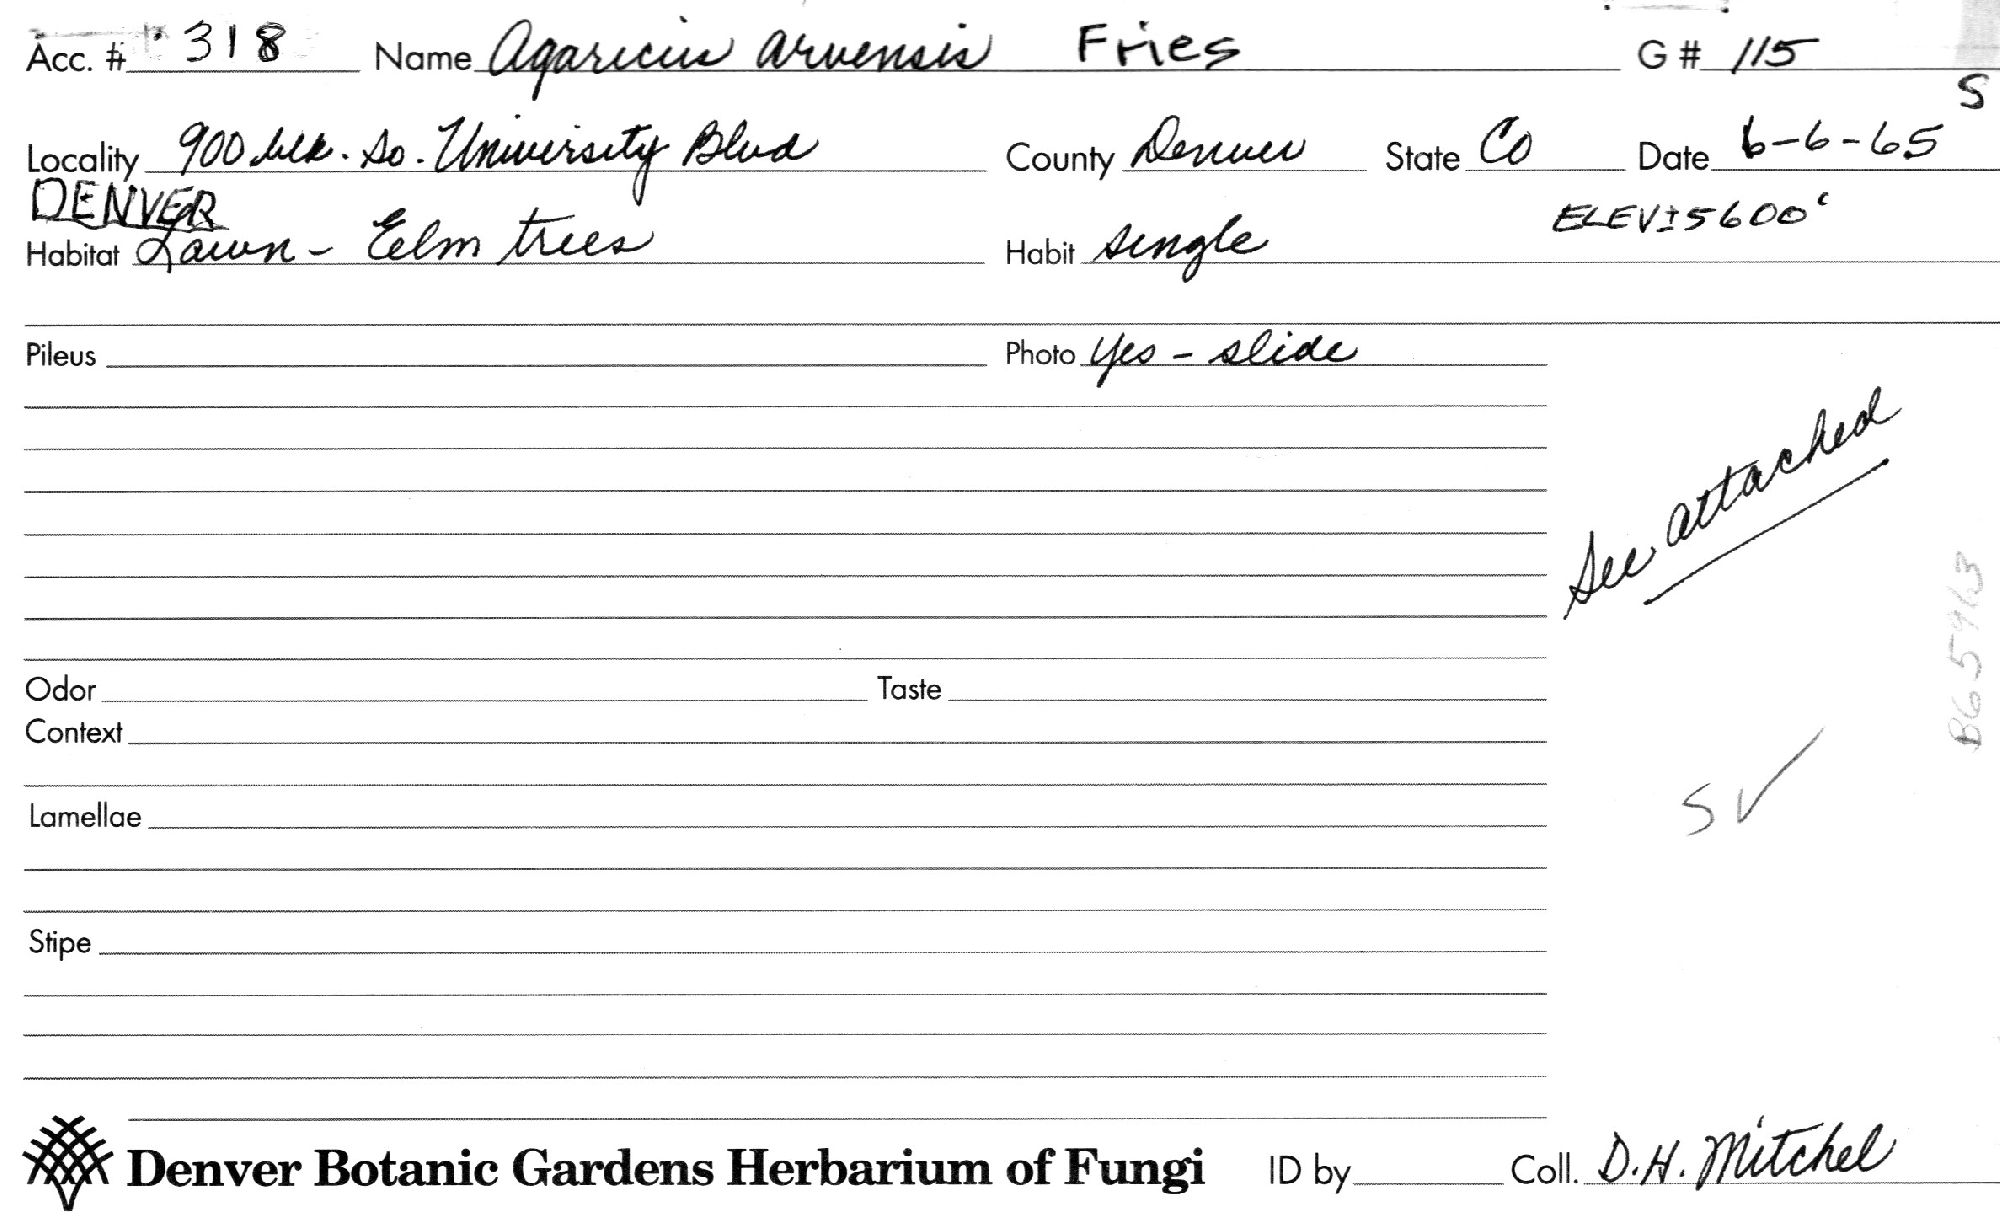 Acc. # 318 Name Agaricus arvensis Fries G # 115
S
Locality 900 blk. So. University Blvd County Denver State Co Date 6-6-65
DENVER
ELEV±5600'
Habitat Lawn - Eelm trees Habit single
Pileus Photo yes - slide
See attached
Odor Taste
Context
B65913
S ✓
Lamellae
Stipe
Denver Botanic Gardens Herbarium of Fungi ID by Coll. D.H. Mitchel